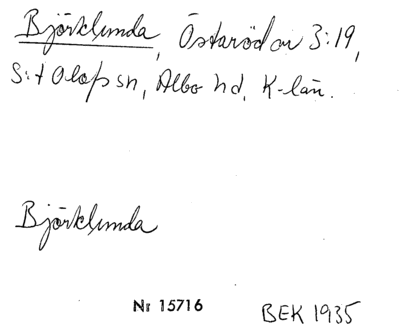 Björklunda, Östaröd av 3:19,
S:t Olofs sn, Albo hd, K-län.
Björklunda
Nr 15716
BEK 1935